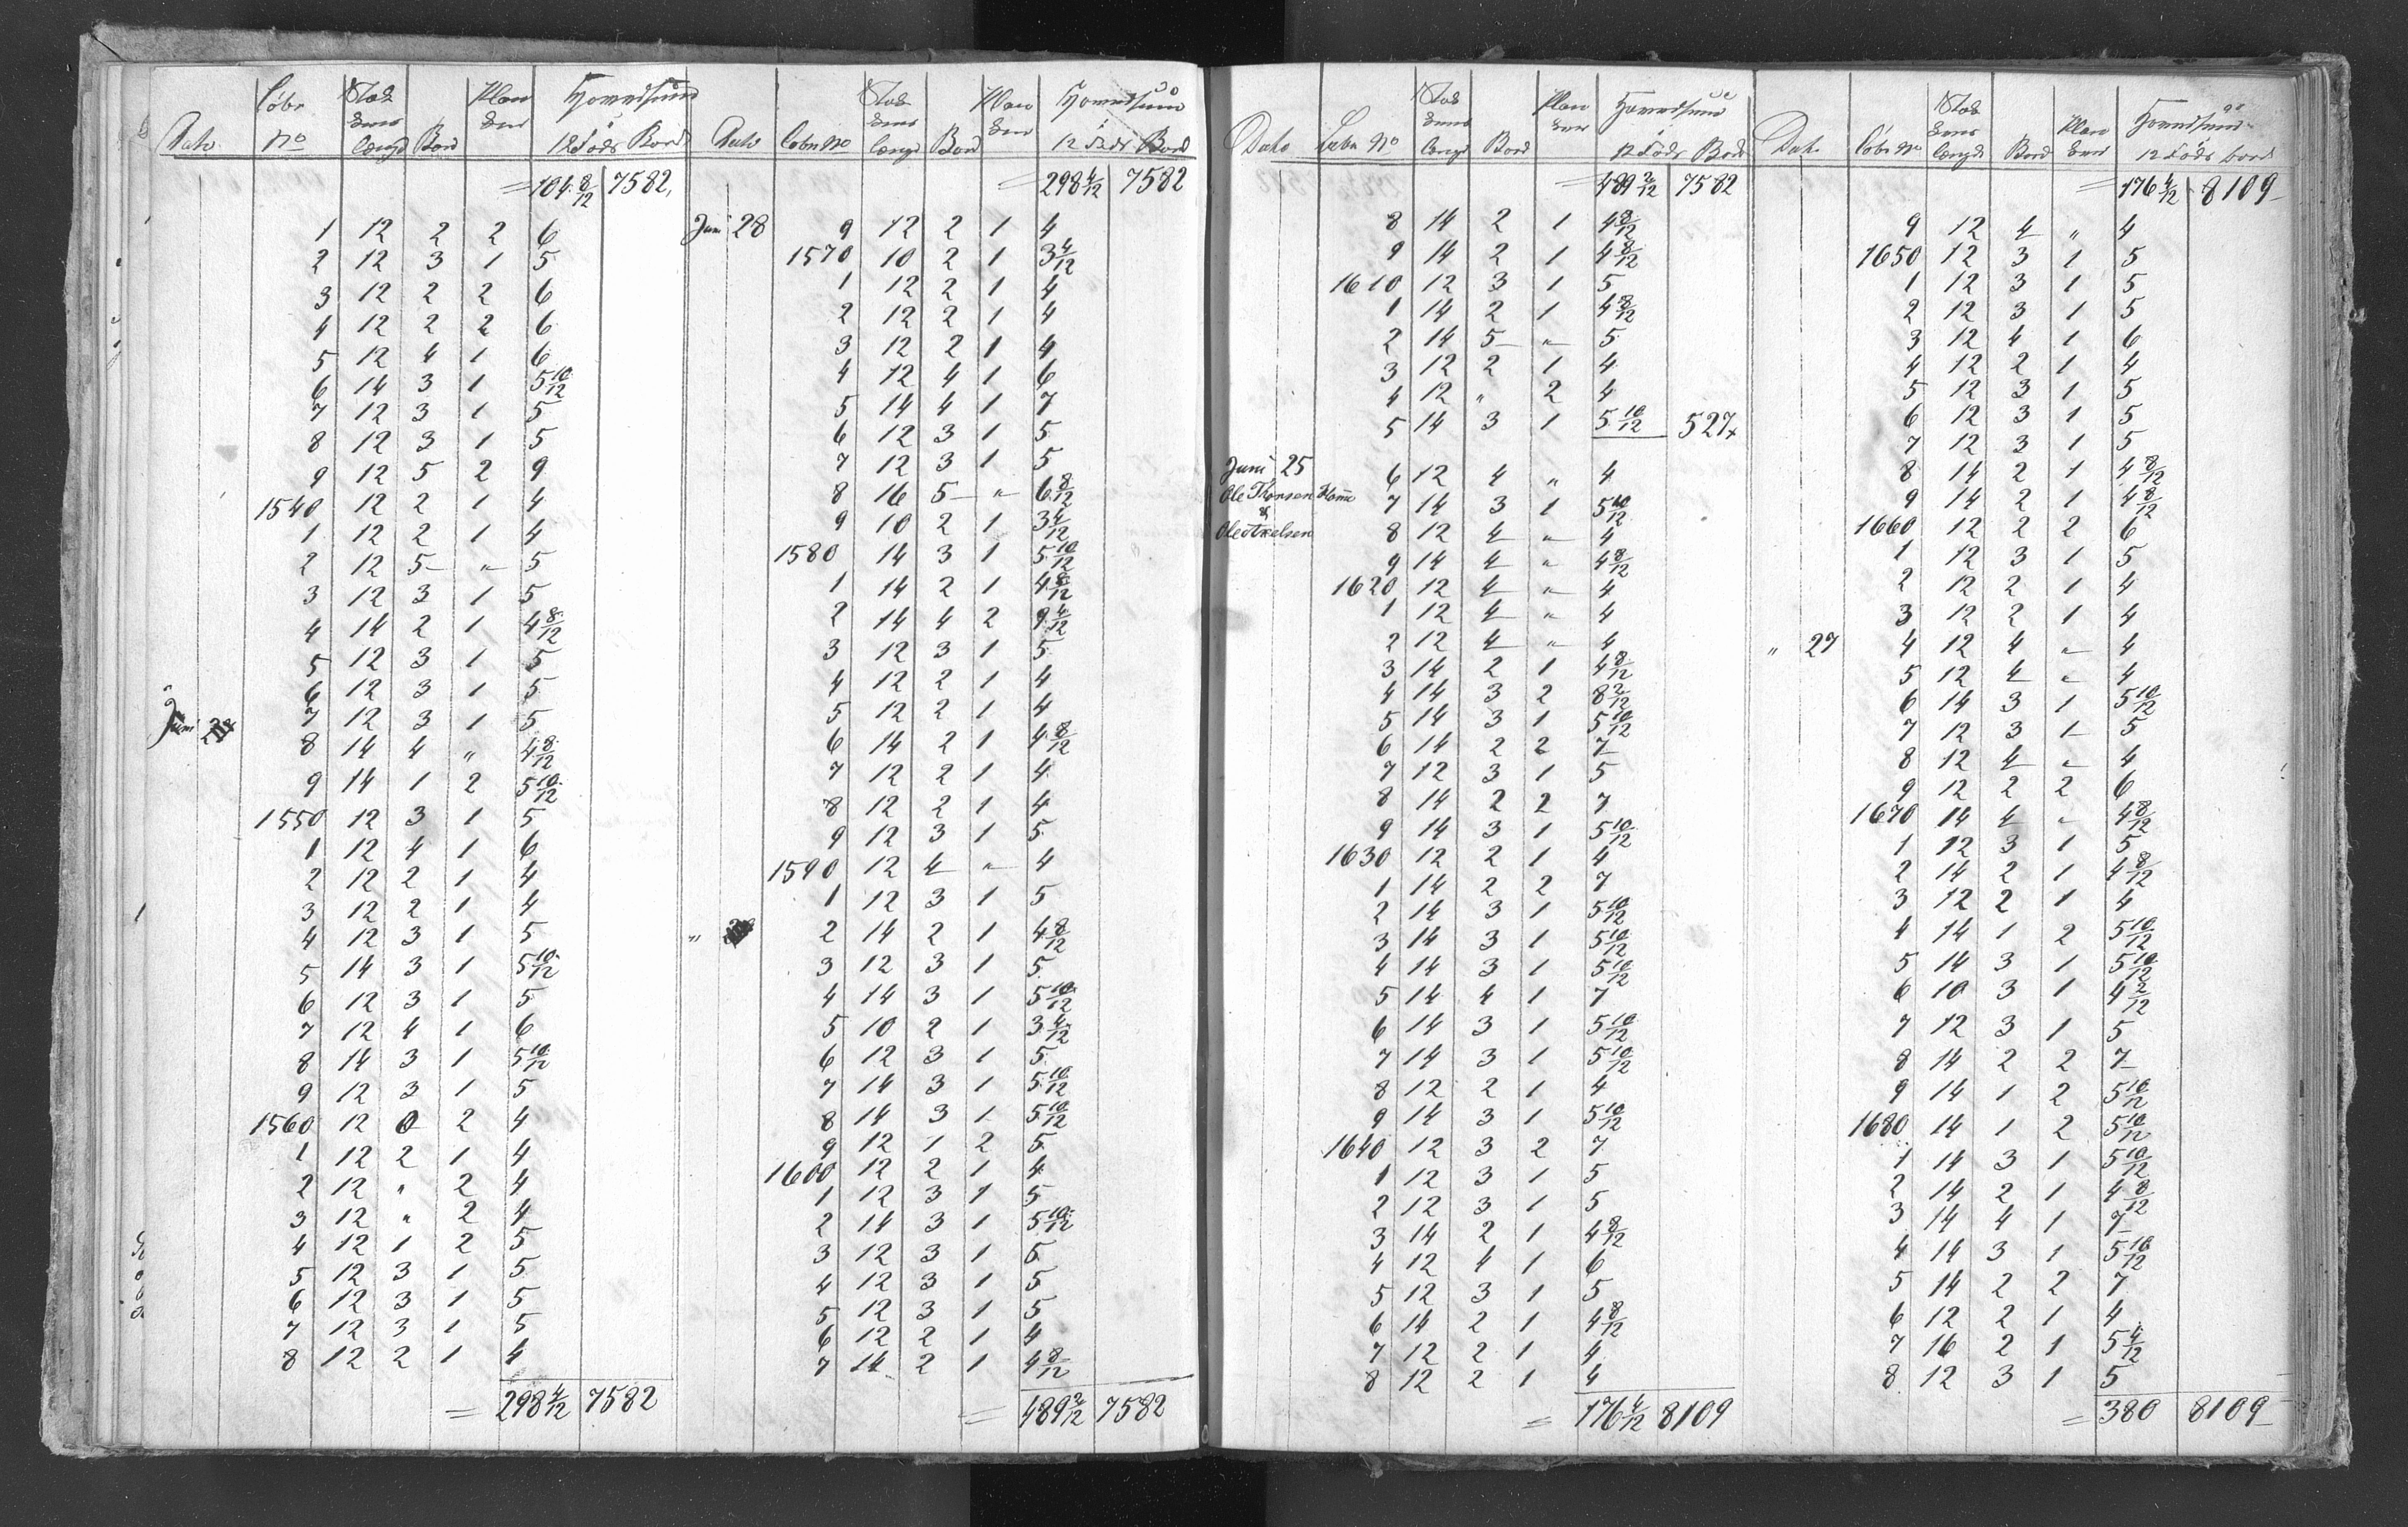 Dato Løbe No Stok kens længd Bord Plan ker Hovedsum 12 Föds Bord
= 104 8/12 7582
1 12 2 2 6
2 12 3 1 5
3 12 2 2 6
4 12 2 2 6
5 12 4 1 6
6 14 3 1 5 10/12
7 12 3 1 5
8 12 3 1 5
9 12 5 2 9
1540 12 2 1 4
1 12 2 1 4
2 12 5 " 5
3 12 3 1 5
4 14 2 1 4 8/12
5 12 3 1 5
6 12 3 1 5
Juni 24 7 12 3 1 5
8 14 4 " 4 8/12
9 14 1 2 5 10/12
1550 12 3 1 5
1 12 4 1 6
2 12 2 1 4
3 12 2 1 4
4 12 3 1 5
5 14 3 1 5 10/12
6 12 3 1 5
7 12 4 1 6
8 14 3 1 5 10/12
9 12 3 1 5
1560 12 0 2 4
1 12 2 1 4
2 12 " 2 4
3 12 " 2 4
4 12 1 2 5
5 12 3 1 5
6 12 3 1 5
7 12 3 1 5
8 12 2 1 4
= 298 4/12 7582
Dato Løbe No Stok kens længd Bord Plan ker Hovedsum 12 Föds Bord
= 298 4/12 7582
Juni 28 9 12 2 1 4
1570 10 2 1 3 4/12
1 12 2 1 4
2 12 2 1 4
3 12 2 1 4
4 12 4 1 6
5 14 4 1 7
6 12 3 1 5
7 12 3 1 5
8 16 5 " 6 8/12
9 10 2 1 3 4/12
1580 14 3 1 5 10/12
1 14 2 1 4 8/12
2 14 4 2 9 4/12
3 12 3 1 5
4 12 2 1 4
5 12 2 1 4
6 14 2 1 4 8/12
7 12 2 1 4
8 12 2 1 4
9 12 3 1 5
1590 12 4 " 4
1 12 3 1 5
" 2 14 2 1 4 8/12
3 12 3 1 5
4 14 3 1 5 10/12
5 10 2 1 3 4/12
6 12 3 1 5
7 14 3 1 5 10/12
8 14 3 1 5 10/12
9 12 1 2 5
1600 12 2 1 4
1 12 3 1 5
2 14 3 1 5 10/12
3 12 3 1 5
4 12 3 1 5
5 12 3 1 5
6 12 2 1 4
7 14 2 1 4 8/12
= 489 2/12 7582
Dato Løbe No Stok kens længd Bord Plan ker Hovedsum 12 Föds Bord
= 489 2/12 7582
8 14 2 1 4 8/12
9 14 2 1 4 8/12
1610 12 3 1 5
1 14 2 1 4 8/12
2 14 5 " 5
3 12 2 1 4
4 12 " 2 4
5 14 3 1 5 10/12 527
Juni 25 6 12 4 " 4
Ole Thorsen Homme 7 14 3 1 5 10/12
&
8 12 4 " 4
9 14 4 " 4 8/12
1620 12 4 " 4
1 12 4 " 4
2 12 4 " 4
3 14 2 1 4 8/12
4 14 3 2 8 2/12
5 14 3 1 5 10/12
6 14 2 2 7
7 12 3 1 5
8 14 2 2 7
9 14 3 1 5 10/12
1630 12 2 1 4
1 14 2 2 7
2 14 3 1 5 10/12
3 14 3 1 5 10/12
4 14 3 1 5 10/12
5 14 4 1 7
6 14 3 1 5 10/12
7 14 3 1 5 10/12
8 12 2 1 4
9 14 3 1 5 10/12
1640 12 3 2 7
1 12 3 1 5
2 12 3 1 5
3 14 2 1 4 8/12
4 12 4 1 6
5 12 3 1 5
6 14 2 1 4 8/12
7 12 2 1 4
8 12 2 1 4
= 176 4/12 8109
Dato Løbe No Stok kens længde Bord Plan ker Hovedsum 12 Föds bord
= 176 4/12 8109
9 12 4 " 4
1650 12 3 1 5
1 12 3 1 5
2 12 3 1 5
3 12 4 1 6
4 12 2 1 4
5 12 3 1 5
6 12 3 1 5
7 12 3 1 5
8 14 2 1 4 8/12
9 14 2 1 4 8/12
1660 12 2 2 6
1 12 3 1 5
2 12 2 1 4
3 12 2 1 4
" 27 4 12 4 " 4
5 12 4 " 4
6 14 3 1 5 10/12
7 12 3 1 5
8 12 4 " 4
9 12 2 2 6
1670 14 4 " 4 8/12
1 12 3 1 5
2 14 2 1 4 8/12
3 12 2 1 4
4 14 1 2 5 10/12
5 14 3 1 5 10/12
6 10 3 1 4 2/12
7 12 3 1 5
8 14 2 2 7
9 14 1 2 5 10/12
1680 14 1 2 5 10/12
1 14 3 1 5 10/12
2 14 2 1 4 8/12
3 14 4 1 7
4 14 3 1 5 10/12
5 14 2 2 7
6 12 2 1 4
7 16 2 1 5 4/12
8 12 3 1 5
= 380 8109